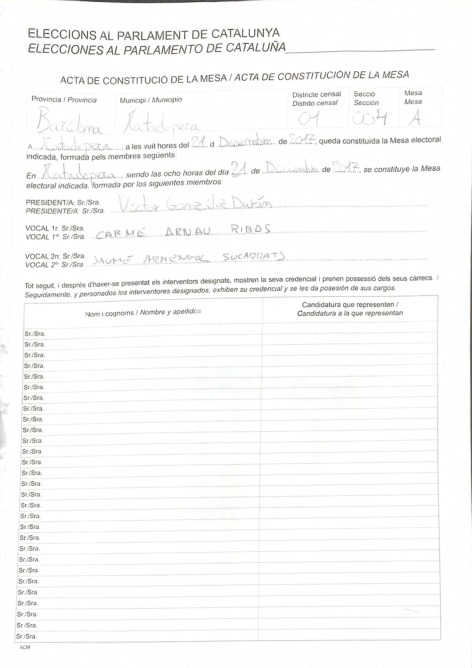 ELECCIONS AL PARLAMENT DE CATALUNYA
ELECCIONES AL PARLAMENTO DE CATALUÑA
ACTA DE CONSTITUCIÓ DE LA MESA / ACTA DE CONSTITUCIÓN DE LA MESA
Provincia / Provincia Municipi / Municipio Districte censal Secció Mesa
Distrito censal Sección Mesa
Barcelona Matadepera 01 004 A
A Matadepera, a les vuit hores del 21 d Desembre de 2017, queda constituïda la Mesa electoral
indicada, formada pels membres següents:
En Matadepera siendo las ocho horas del día 21 de Diciembre de 2017, se constituye la Mesa
electoral indicada, formada por los siguientes miembros:
PRESIDENT/A: Sr./Sra. Víctor González Durán
PRESIDENTE/A: Sr./Sra.
VOCAL 1r: Sr./Sra. CARME ARNAU RIBOS
VOCAL 1º: Sr./Sra.
VOCAL 2n: Sr./Sra. JAUME ARMENGOL SUCARRATS
VOCAL 2º: Sr./Sra.
Tot seguit, i després d'haver-se presentat els interventors designats, mostren la seva credencial i prenen possessió dels seus càrrecs. /
Seguidamente, y personados los interventores designados, exhiben su credencial y se les da posesión de sus cargos.
Nom i cognoms / Nombre y apellidos Candidatura que representen /
Candidatura a la que representan
Sr./Sra.
Sr./Sra.
Sr./Sra.
Sr./Sra.
Sr./Sra.
Sr./Sra.
Sr./Sra.
Sr./Sra.
Sr./Sra.
Sr./Sra.
Sr./Sra.
Sr./Sra.
Sr./Sra.
Sr./Sra.
Sr./Sra.
Sr./Sra.
Sr./Sra.
Sr./Sra.
Sr./Sra.
Sr./Sra.
Sr./Sra.
Sr./Sra.
Sr./Sra.
Sr./Sra.
Sr./Sra.
Sr./Sra.
Sr./Sra.
Sr./Sra.
Sr./Sra.
ACM